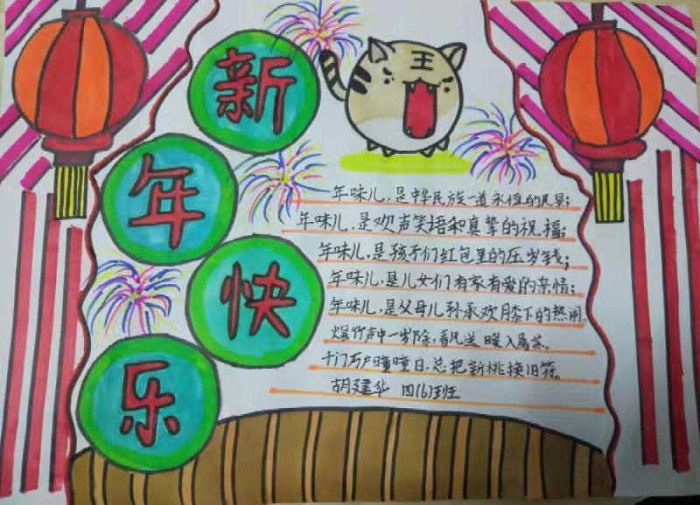 新年快乐
王
年味儿,是中华民族一道永恒的风景;
年味儿,是欢声笑语和真挚的祝福;
年味儿,是孩子们红包里的压岁钱;
年味儿,是儿女们有家有爱的亲情;
年味儿,是父母儿孙承欢膝下的热闹.
爆竹声中一岁除,春风送暖入屠苏.
千门万户曈曈日,总把新桃换旧符.
胡建华 四(6)班